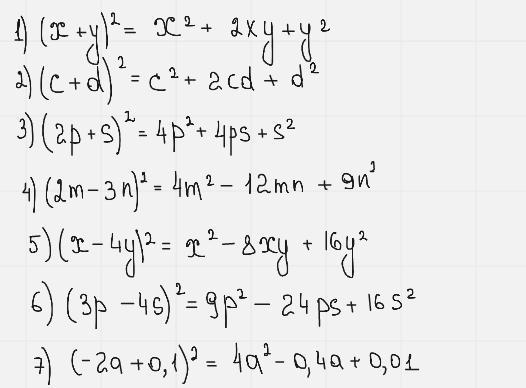 1) (x+y)² = x² + 2xy + y²
2) (c+d)² = c² + 2cd + d²
3) (2p+s)² = 4p² + 4ps + s²
4) (2m-3n)² = 4m² - 12mn + 9n²
5) (x-4y)² = x² - 8xy + 16y²
6) (3p-4s)² = 9p² - 24ps + 16s²
7) (-2a+0,1)² = 4a² - 0,4a + 0,01